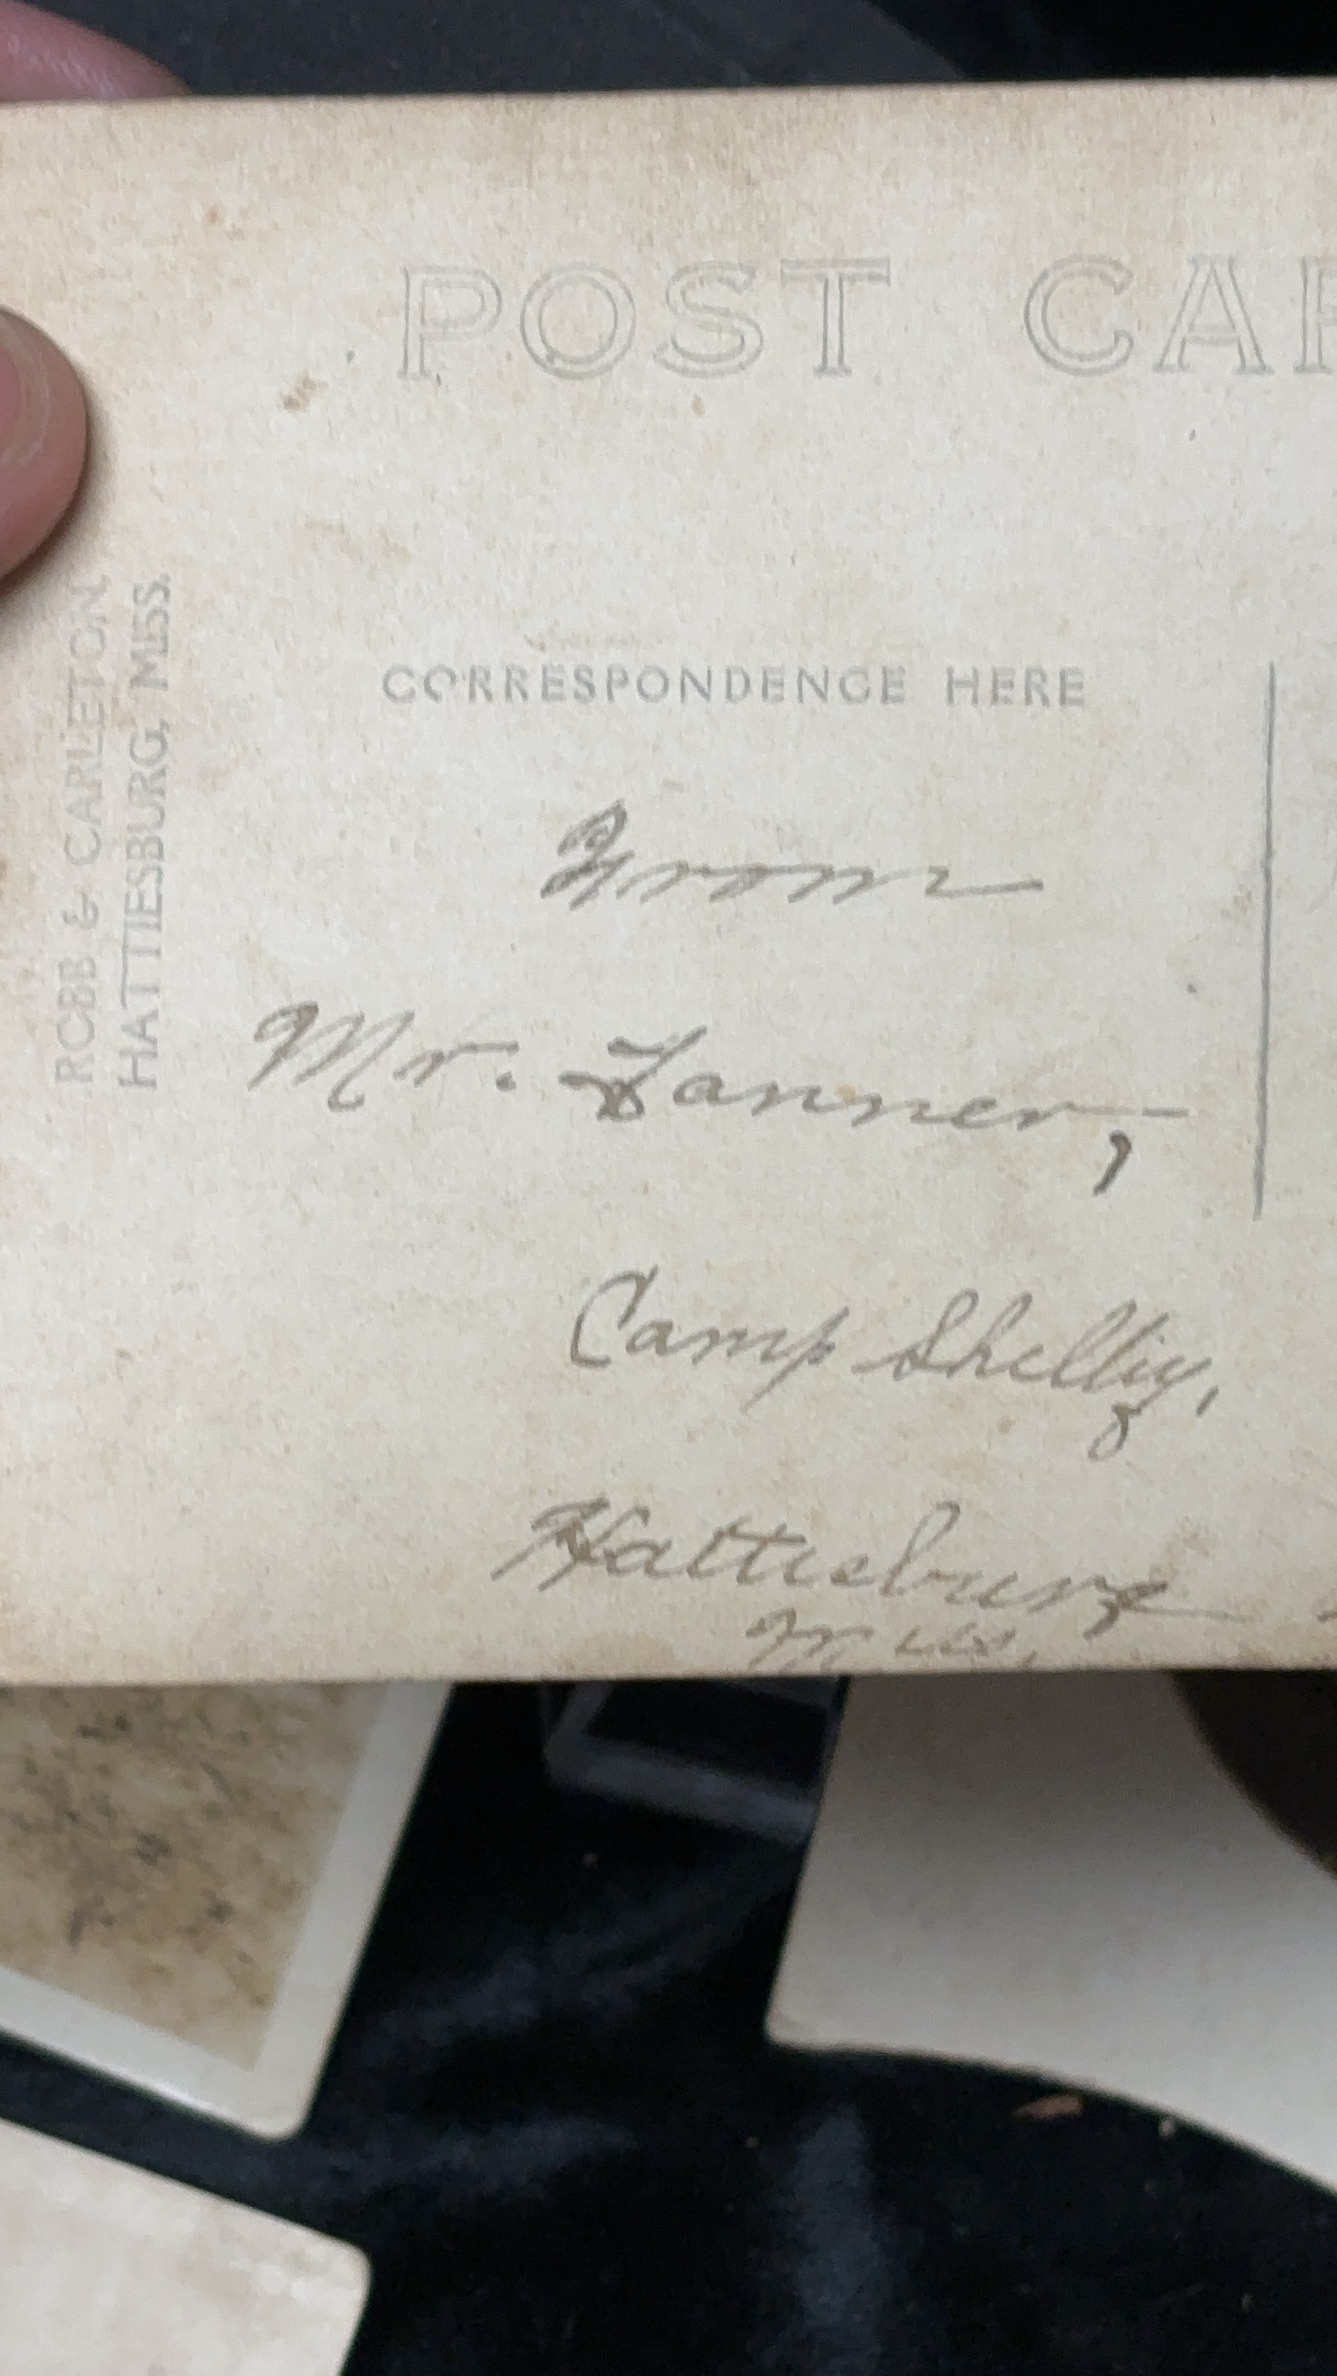 POST CAR
ROBB & CARLETON
HATTIESBURG, MISS.
CORRESPONDENCE HERE
From
Mr. Tanner,
Camp Shelby,
Hattiesburg
Miss.